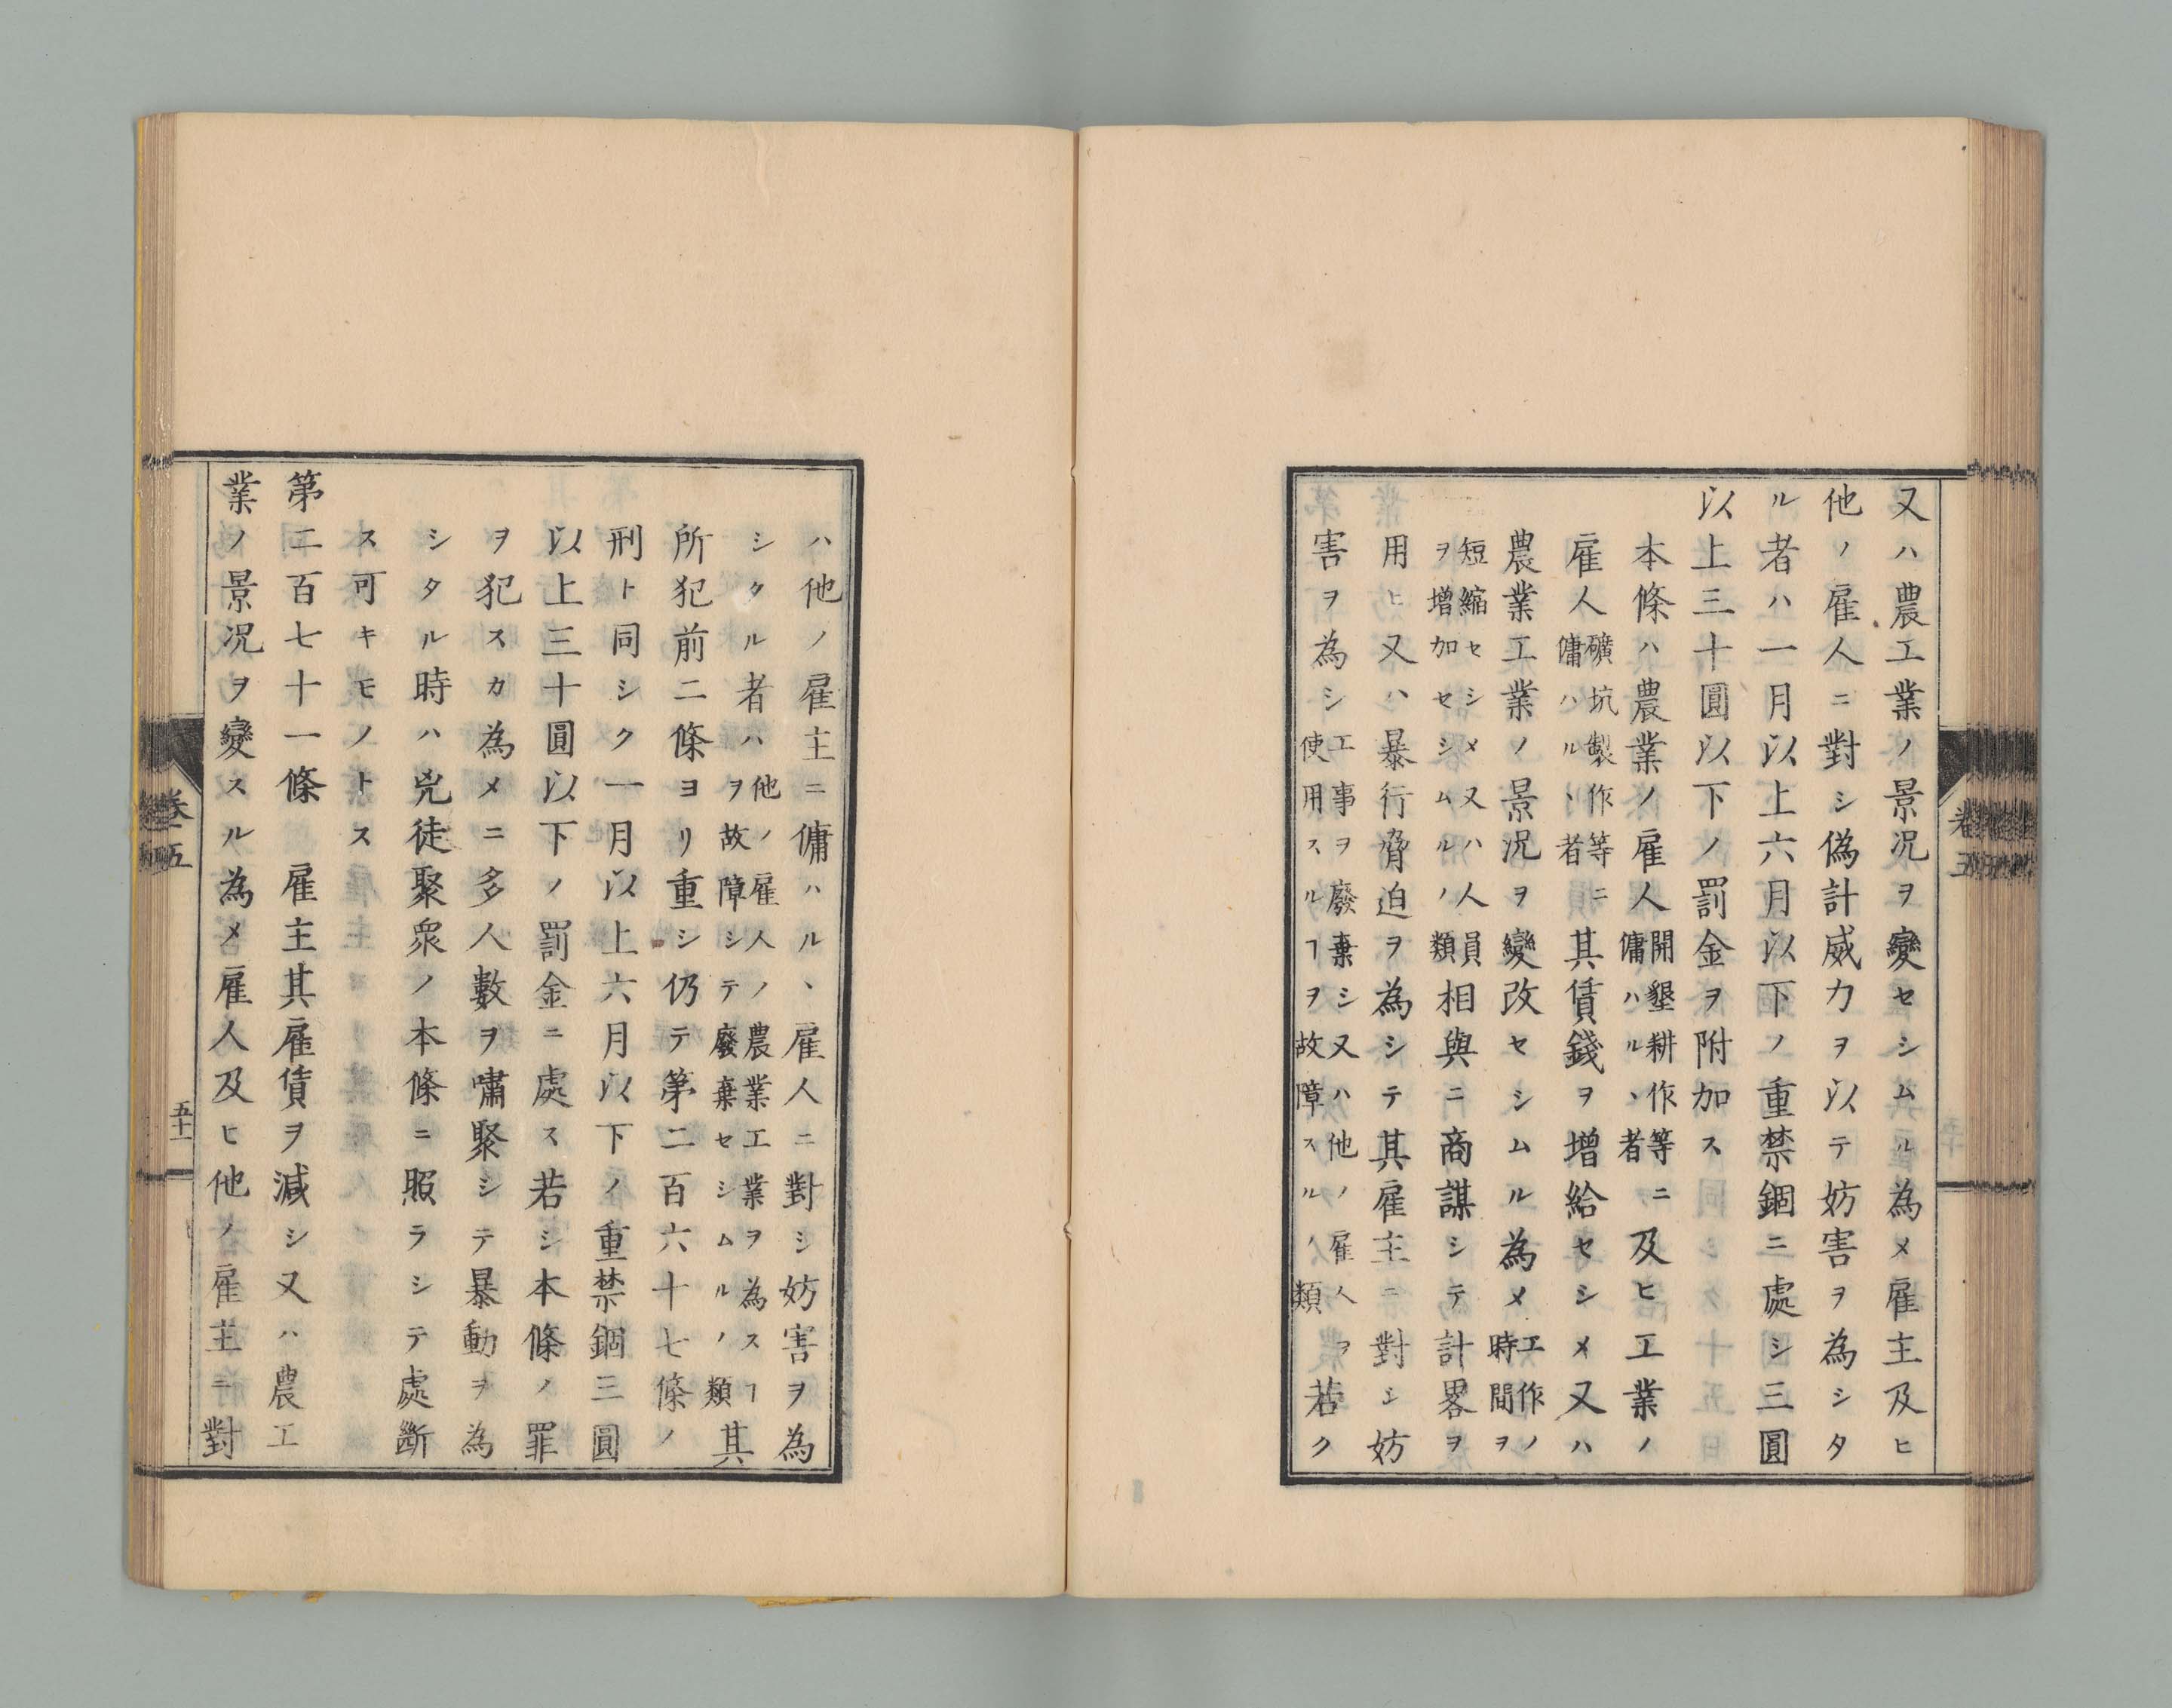 又ハ農工業ノ景況ヲ變セシムル為メ雇主及ヒ
他ノ雇人ニ對シ偽計威力ヲ以テ妨害ヲ為シタ
ル者ハ一月以上六月以下ノ重禁錮ニ處シ三圓
以上三十圓以下ノ罰金ヲ附加ス
本條ハ農業ノ雇人開墾耕作等ニ傭ハルヽ者及ヒ工業ノ
雇人礦坑製作等ニ傭ハルヽ者其賃錢ヲ增給セシメ又ハ
農業工業ノ景況ヲ變改セシムル為メ工作ノ時間ヲ
短縮セシメ又ハ人員ヲ增加セシムルノ類相與ニ商謀シテ計畧ヲ
用ヒ又ハ暴行脅迫ヲ為シテ其雇主ニ對シ妨
害ヲ為シ工事ヲ廢棄シ又ハ他ノ雇人ヲ使用スルヿヲ故障スルノ類若ク
卷五
ハ他ノ雇主ニ傭ハルヽ雇人ニ對シ妨害ヲ為
シタル者ハ他ノ雇人ノ農業工業ヲ為スヿヲ故障シテ廢棄セシムルノ類其
所犯前二條ヨリ重シ仍テ第二百六十七條ノ
刑ト同シク一月以上六月以下ノ重禁錮三圓
以上三十圓以下ノ罰金ニ處ス若シ本條ノ罪
ヲ犯スカ為メニ多人數ヲ嘯聚シテ暴動ヲ為
シタル時ハ兇徒聚衆ノ本條ニ照ラシテ處斷
ス可キモノトス
第二百七十一條　雇主其雇賃ヲ減シ又ハ農工
業ノ景況ヲ變スル為メ雇人及ヒ他ノ雇主ニ對
卷五
五十一